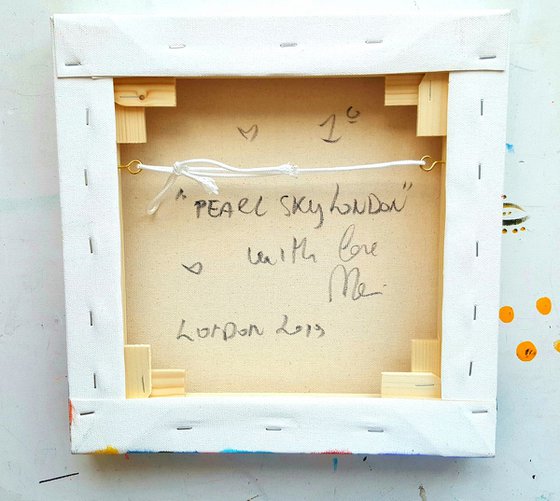 1°
"PEARL SKY LONDON"
with love
LONDON 2019